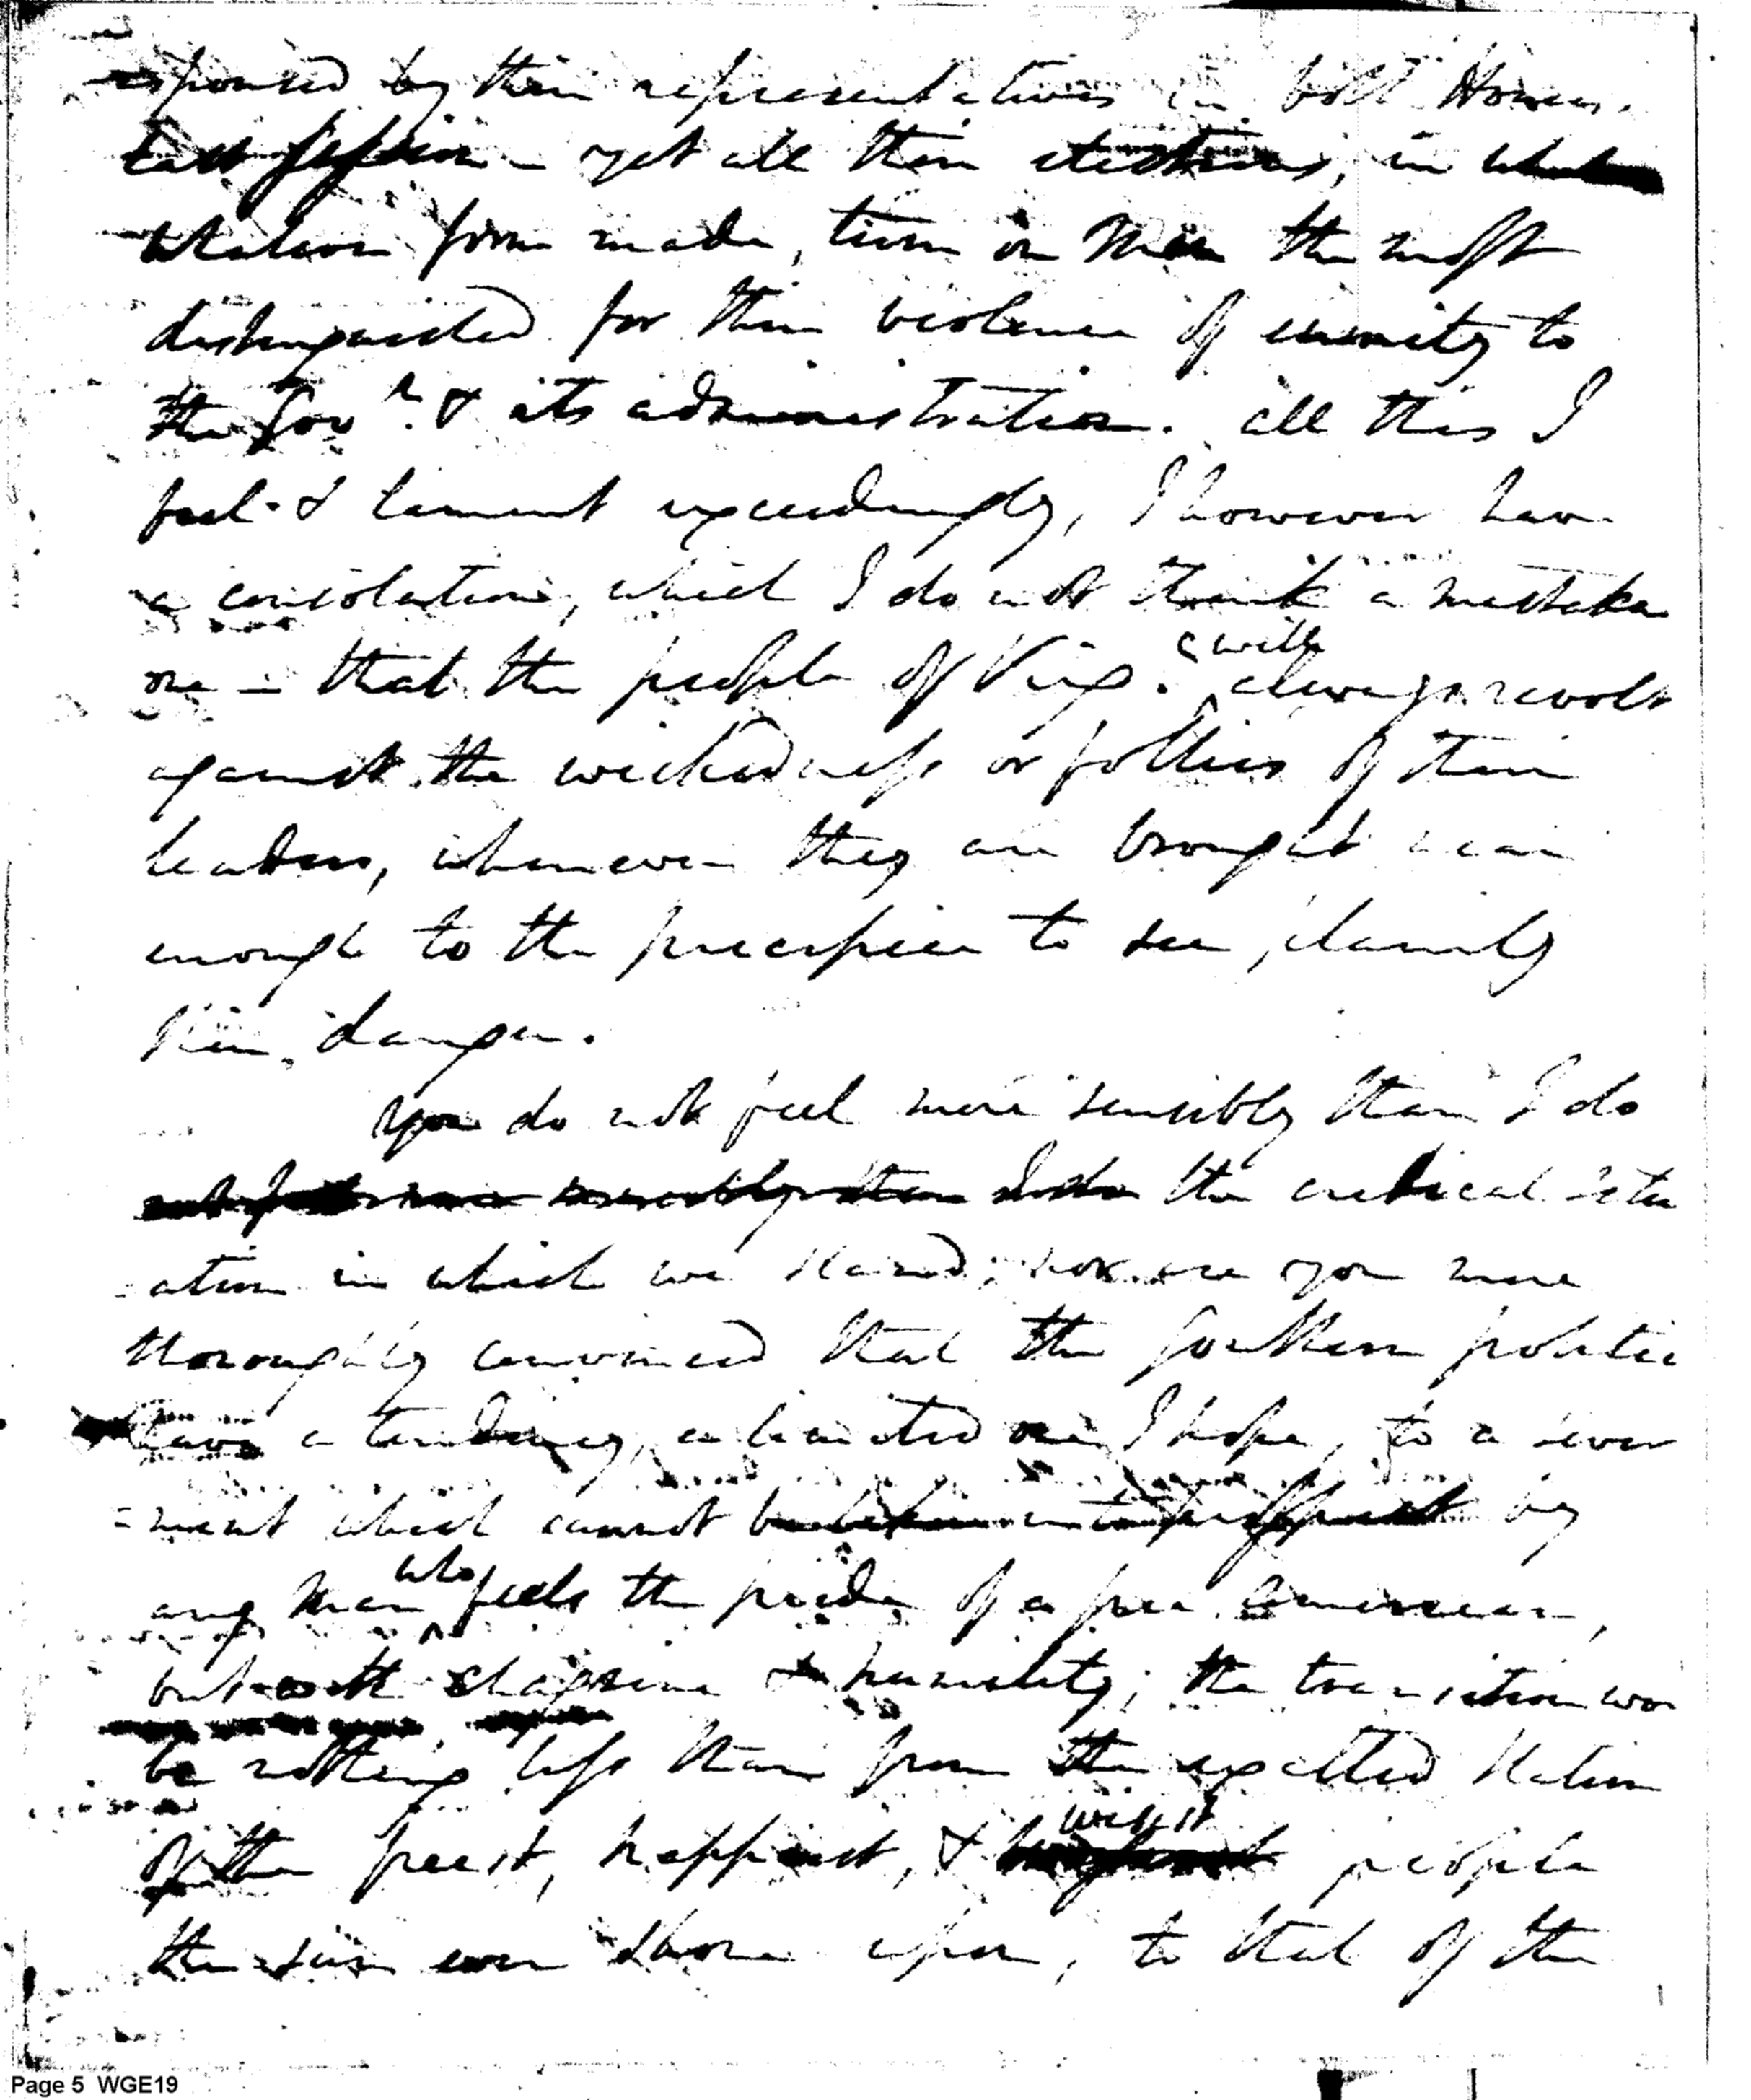 espoused by their representatives in both Houses.
last session - yet all their elections, in
whatever form made, turn on Men the most
distinguished for their violence of enmity to
the Govt. & its administration. all this I
feel & lament exceedingly, I however have
a consolation, which I do not think a mistaken
will
one - that the people of Virga. always revolt
against the wickedness or follies of their
leaders, whenever they are brought near
enough to the precipice to see, clearly
their danger.
you do not feel more sensibly than I do
the critical situ
ation in which we stand; nor are you more
thoroughly convinced that the southern politic
have a tendency, a limited one I hope, to a
=ment which cannot by
who
any Man feels the pride of a free American,
but with chagrine & humility; the transition wou
be nothing less than from the exalted station
wisest
of the freest, happiest, & people
the sun ever shone upon, to that of the
Page 5 WGE19